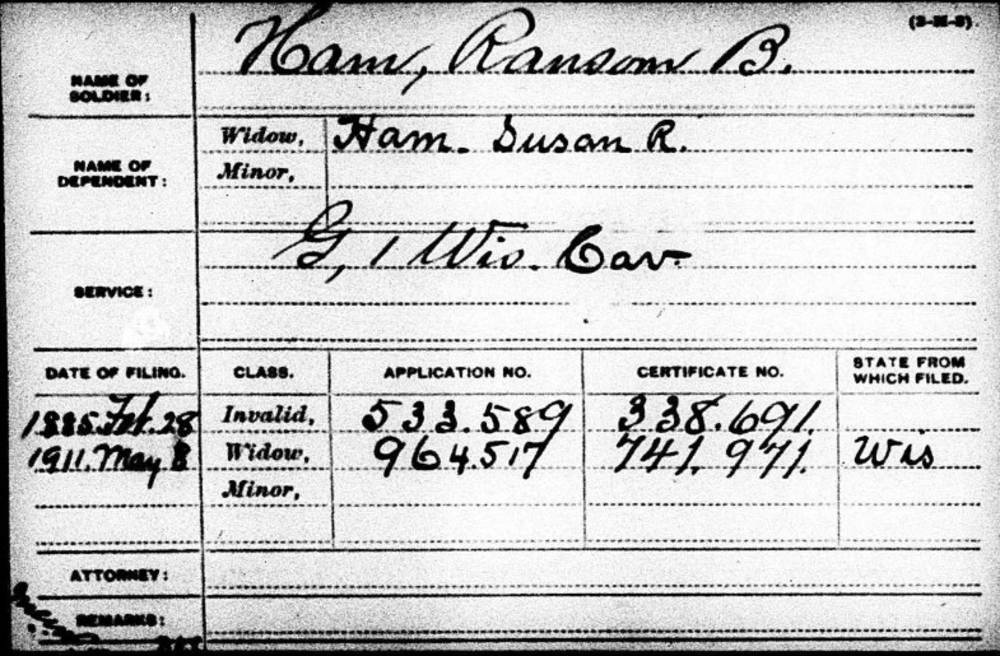 Ham, Ransom B.
NAME OF
SOLDIER:
Widow, Ham. Susan R.
NAME OF
DEPENDENT:
Minor,
G, 1 Wis. Cav.
SERVICE:
DATE OF FILING. CLASS. APPLICATION NO. CERTIFICATE NO. STATE FROM
WHICH FILED.
1885. Feb. 28 Invalid, 533.589 338.691.
1911. May 8 Widow, 964.517 741.971. Wis
Minor,
ATTORNEY:
REMARKS: